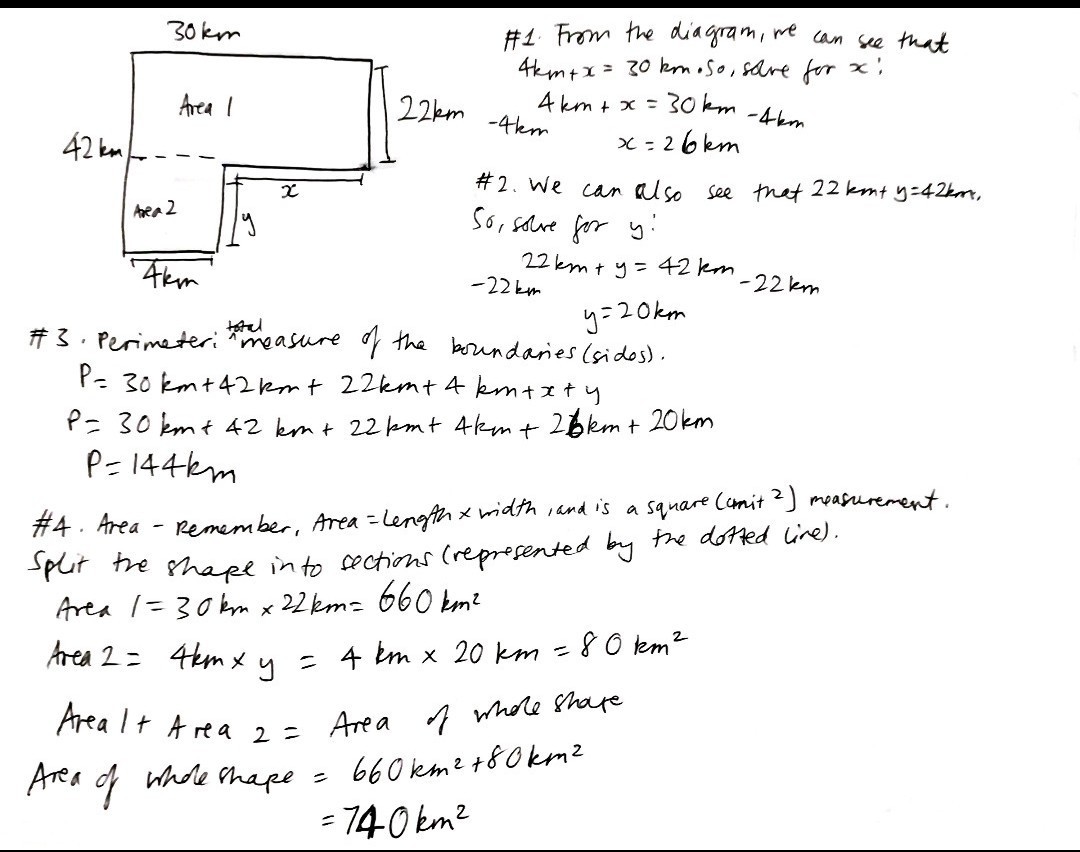 30 km
Area 1
22km
42 km
x
Area 2
y
4km
#1. From the diagram, we can see that
4km + x = 30 km. So, solve for x:
4 km + x = 30 km
-4km -4km
x = 26 km
#2. We can also see that 22 km + y = 42km.
So, solve for y:
22 km + y = 42 km
-22 km -22 km
y = 20km
#3. Perimeter: total measure of the boundaries (sides).
P = 30 km + 42 km + 22km + 4 km + x + y
P = 30 km + 42 km + 22 km + 4km + 26km + 20km
P = 144km
#4. Area - Remember, Area = Length x width, and is a square (unit ²) measurement.
Split the shape into sections (represented by the dotted line).
Area 1 = 30 km x 22 km = 660 km²
Area 2 = 4km x y = 4 km x 20 km = 80 km²
Area 1 + Area 2 = Area of whole shape
Area of whole shape = 660 km² + 80 km²
= 740 km²